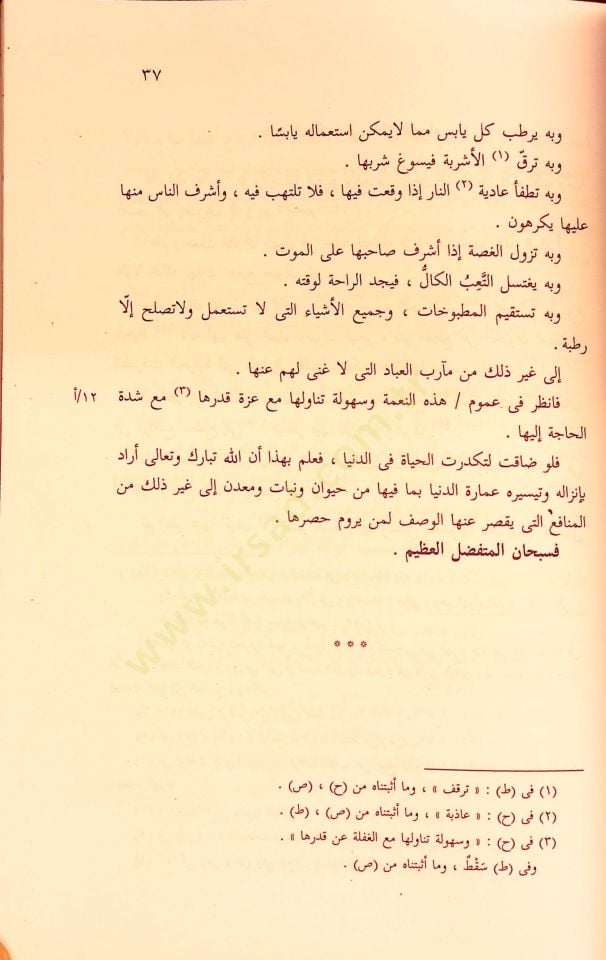 ٣٧
وبه يرطب كل يابس مما لايمكن استعماله يابسًا .
وبه ترقّ (١) الأشربة فيسوغ شربها .
وبه تطفأ عادية (٢) النار إذا وقعت فيها ، فلا تلتهب فيه ، وأشرف الناس منها
عليها يكرهون .
وبه تزول الغصة إذا أشرف صاحبها على الموت .
وبه يغتسل التَّعِبُ الكالُّ ، فيجد الراحة لوقته .
وبه تستقيم المطبوخات ، وجميع الأشياء التى لا تستعمل ولاتصلح إلّا
رطبة .
إلى غير ذلك من مآرب العباد التى لا غنى لهم عنها .
فانظر فى عموم / هذه النعمة وسهولة تناولها مع عزة قدرها (٣) مع شدة ١٢/أ
الحاجة إليها .
فلو ضاقت لتكدرت الحياة فى الدنيا ، فعلم بهذا أن الله تبارك وتعالى أراد
بإنزاله وتيسيره عمارة الدنيا بما فيها من حيوان ونبات ومعدن إلى غير ذلك من
المنافع التى يقصر عنها الوصف لمن يروم حصرها .
فسبحان المتفضل العظيم .
* * *
(١) فى (ط) : « ترقف » ، وما أثبتناه من (ح) ، (ص) .
(٢) فى (ح) : « عاذبة » ، وما أثبتناه من (ص) ، (ط) .
(٣) فى (ح) : « وسهولة تناولها مع الغفلة عن قدرها » .
وفى (ط) سَقْطٌ ، وما أثبتناه من (ص) .